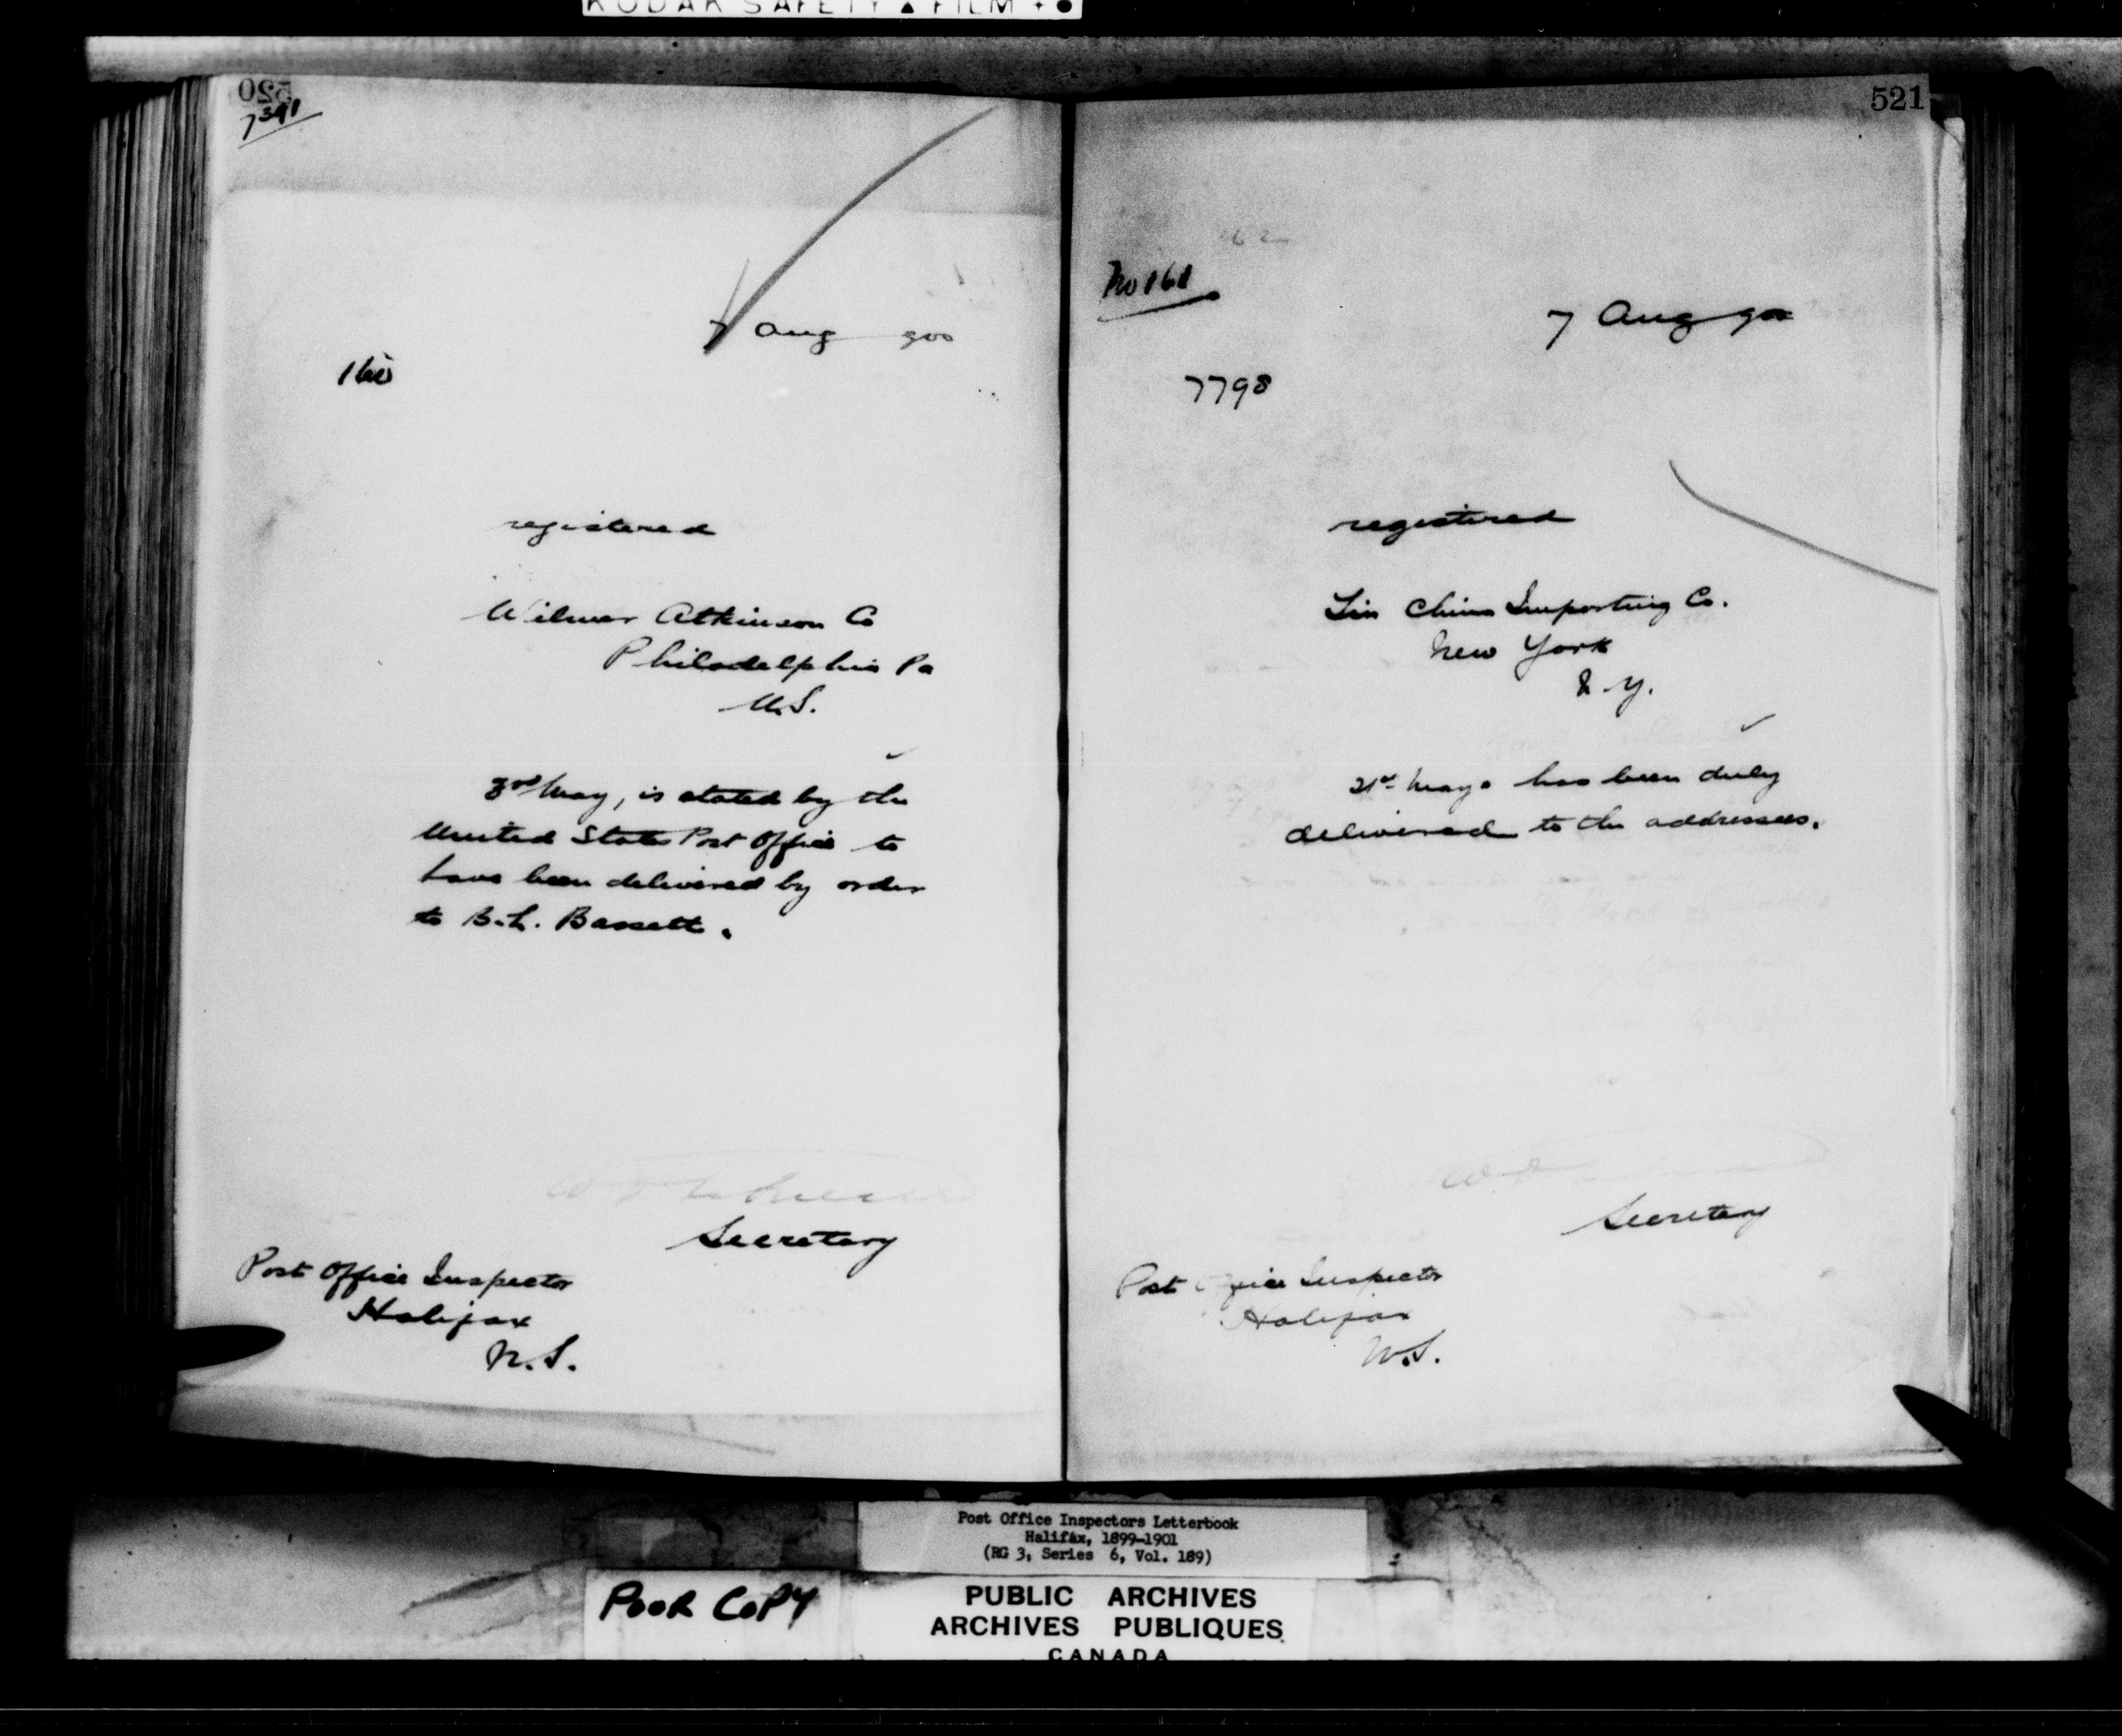 KODAK SAFETY ▲ FILM
520
7391
7 Aug 900
160
registered
Wilmer Atkinson Co
Philadelphia Pa
U.S.
3rd May, is stated by the
United States Post Office to
have been delivered by order
to B.L. Bassett.
Secretary
Post Office Inspector
Halifax
N.S.
521
62
No 161
7 Aug 900
7798
registered
Importing Co.
New York
N.Y.
21st May. has been duly
delivered to the addressees.
Secretary
Post Office Inspector
Halifax
N.S.
Post Office Inspectors Letterbook
Halifax, 1899-1901
(RG 3, Series 6, Vol. 189)
POOR COPY
PUBLIC ARCHIVES
ARCHIVES PUBLIQUES
CANADA